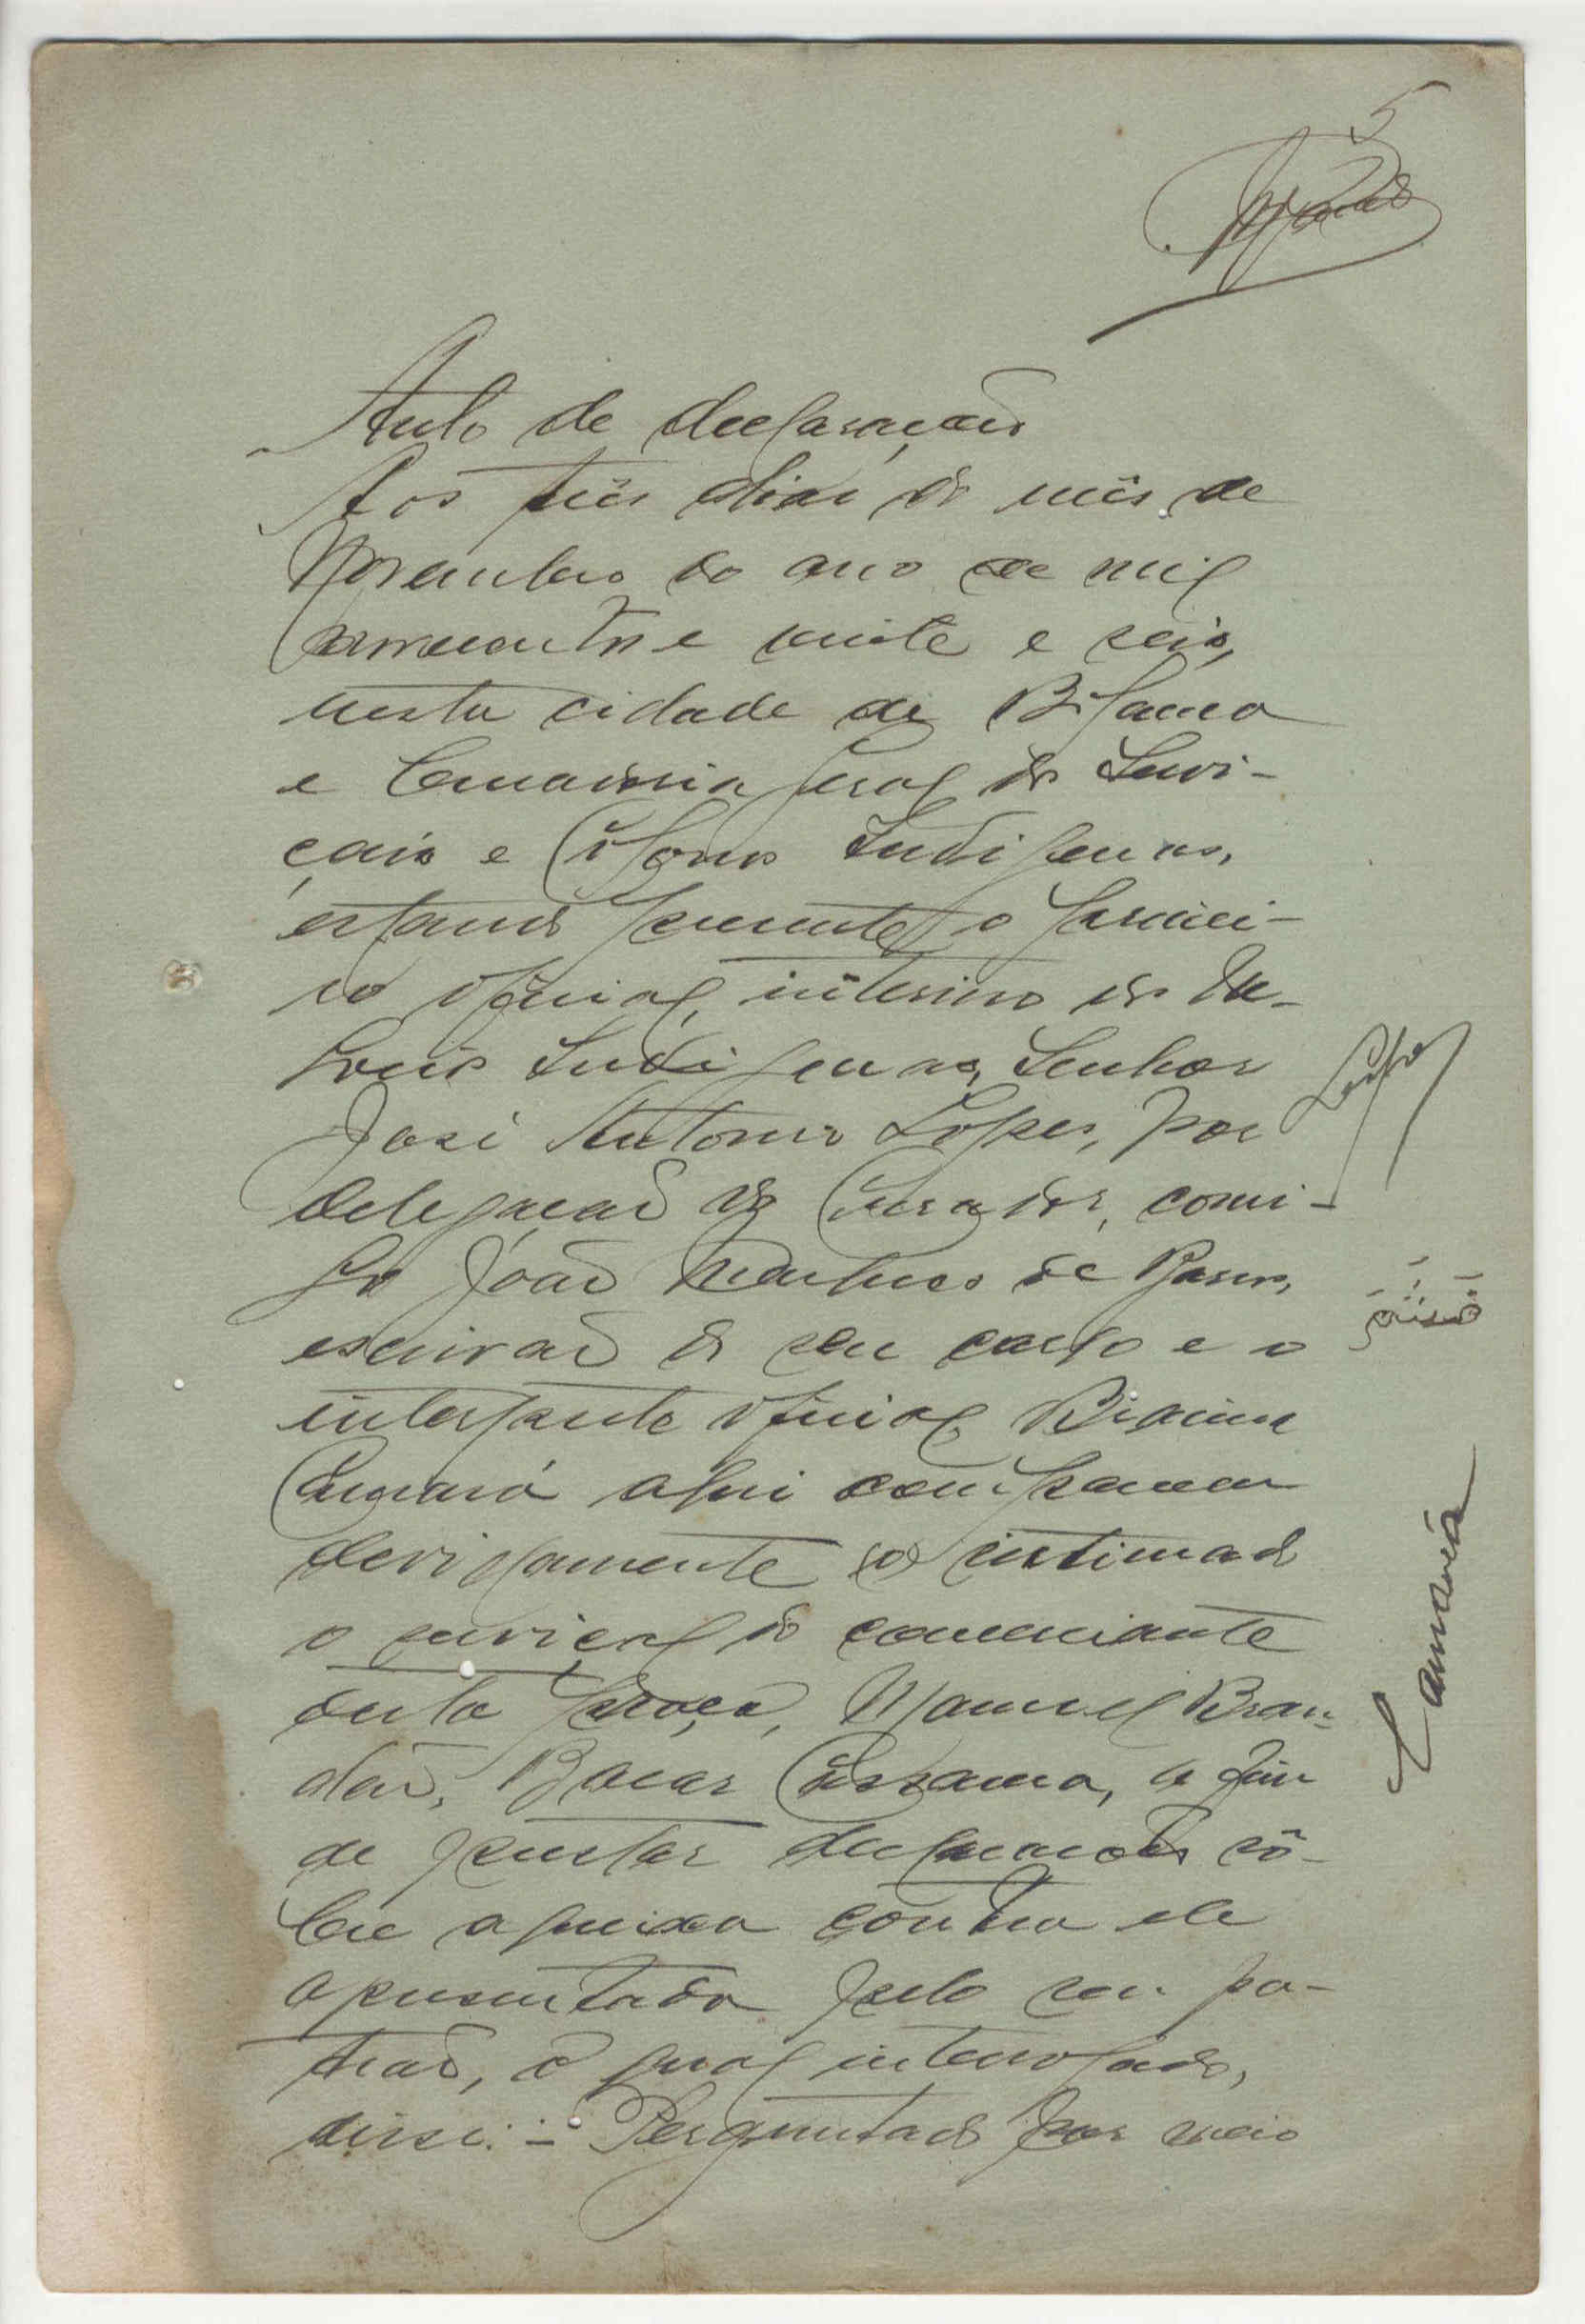 5
Auto de declaração
Aos três dias do mês de
Novembro do ano de mil
novecentos e vinte e seis,
nesta cidade de Bolama
e Curadoria Geral dos Servi-
çais e Colonos Indigenas,
estando presente o primei-
ro oficial, interino dos Ne-
gocios Indigenas, Senhor
José Antonio Lopes, por
delegação do Curador, comi-
go João de
escrivão do seu cargo e o
interprete oficial
Camará aqui compareceu
devidamente intimado
o serviçal do comerciante
desta praça, Manuel Bran-
dão, Bacar Cassamá, a fim
de prestar declarações sô-
bre a queixa contra ele
apresentada pelo seu pa-
trão, o qual interrogado,
disse: – Perguntado por meio
Lopes
Camará